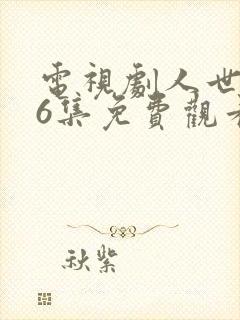 電視劇人世
6集免費觀看
秋紫